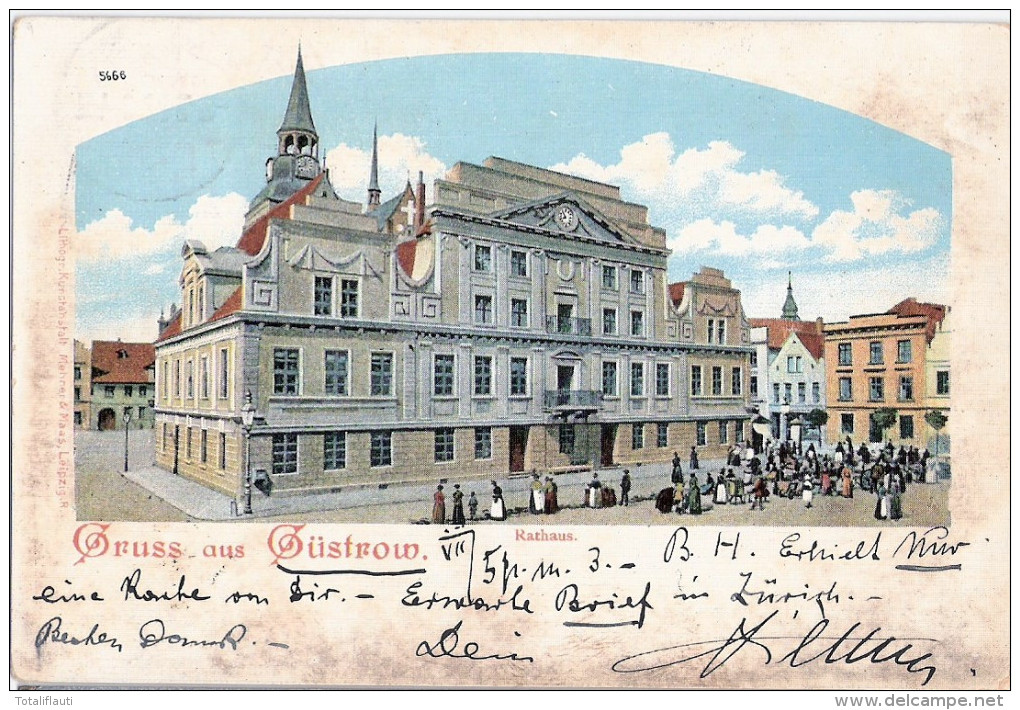 5666
Lithogr. Kunstanstalt Mehner & Maas, Leipzig-R
Gruss aus Güstrow.
Rathaus.
VII 3. - B. H. Erhielt Nur
eine Karte von Dir. - Erwarte Brief in Zürich. -
Dein
Totaliflauti
www.delcampe.net